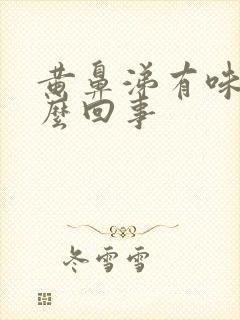 黄鼻涕有味
麽回事
冬雪雪